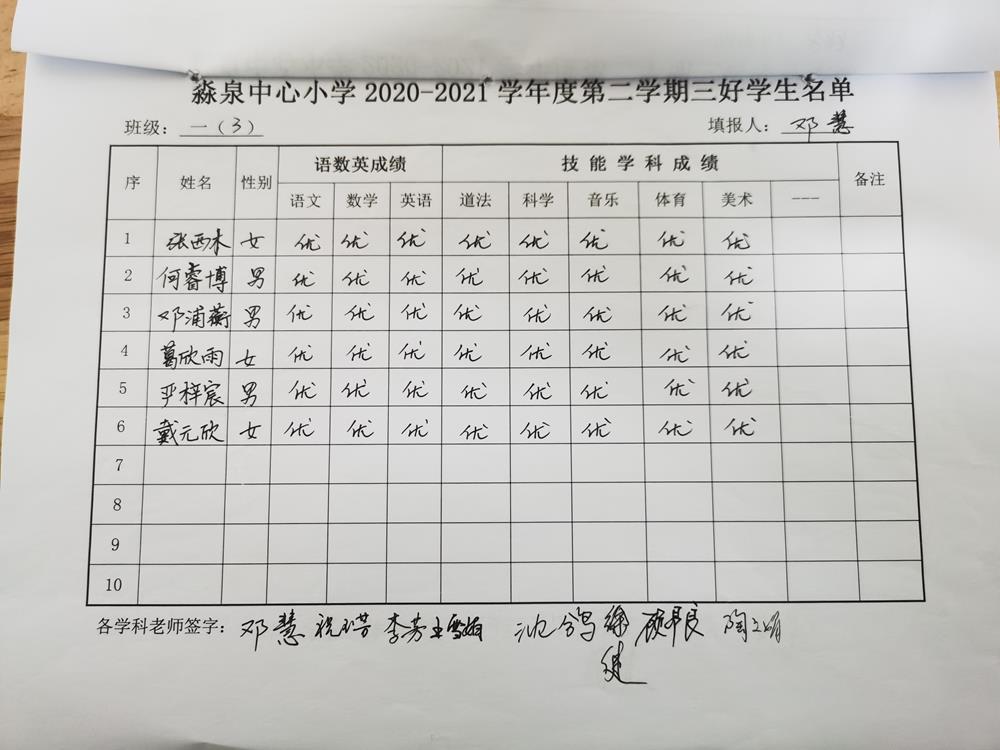 淼泉中心小学 2020-2021 学年度第二学期三好学生名单
班级： 一（3） 填报人： 邓慧
序 姓名 性别 语数英成绩 技能学科成绩 备注
语文 数学 英语 道法 科学 音乐 体育 美术 ---
1 张西木 女 优 优 优 优 优 优 优 优
2 何睿博 男 优 优 优 优 优 优 优 优
3 邓浦蘅 男 优 优 优 优 优 优 优 优
4 葛欣雨 女 优 优 优 优 优 优 优 优
5 严梓宸 男 优 优 优 优 优 优 优 优
6 戴元欣 女 优 优 优 优 优 优 优 优
7
8
9
10
各学科老师签字： 邓慧 李芳 沈